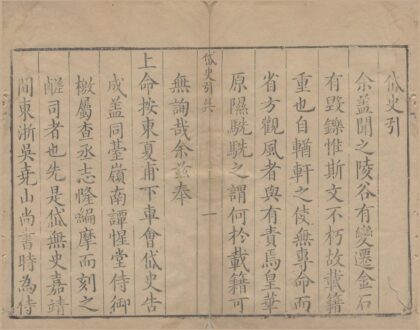 岱史引
余蓋聞之陵谷有變遷金石
有毀鑠惟斯文不朽故載籍
重也自輶軒之使無專命而
省方觀風者與有責焉皇華
原隰駪駪之謂何於載籍可
岱史引共 一
無詢哉余兹奉
上命按東夏甫下車會岱史告
成盖同䑓嶺南譚惺堂侍御
檄屬查丞志隆編摩而刻之
鹺司者也先是岱無史嘉靖
間東浙吴堯山尚書時為侍